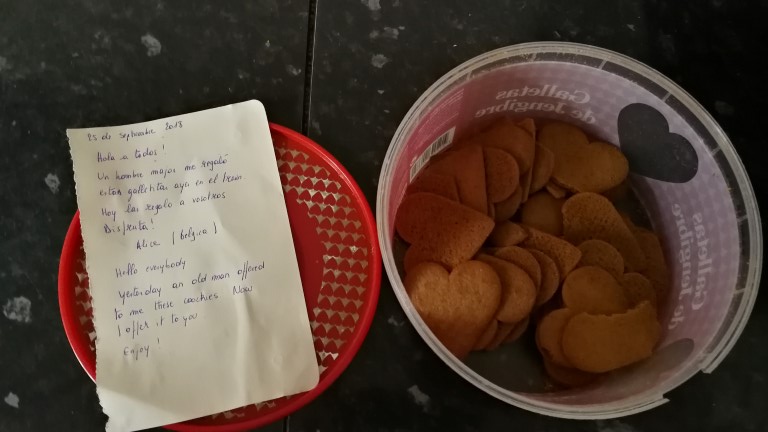 25 de septiembre 2018
Hola a todos!
Un hombre major me regaló
estas galletitas ayer en el tren
Hoy las regalo a vosotros
Disfruta!
Alice (Belgica)
Hello everybody
Yesterday an old man offered
to me these coockies Now
I offer it to you
Enjoy!
Galletas
de Jengibre
Galletas
de Jengibre